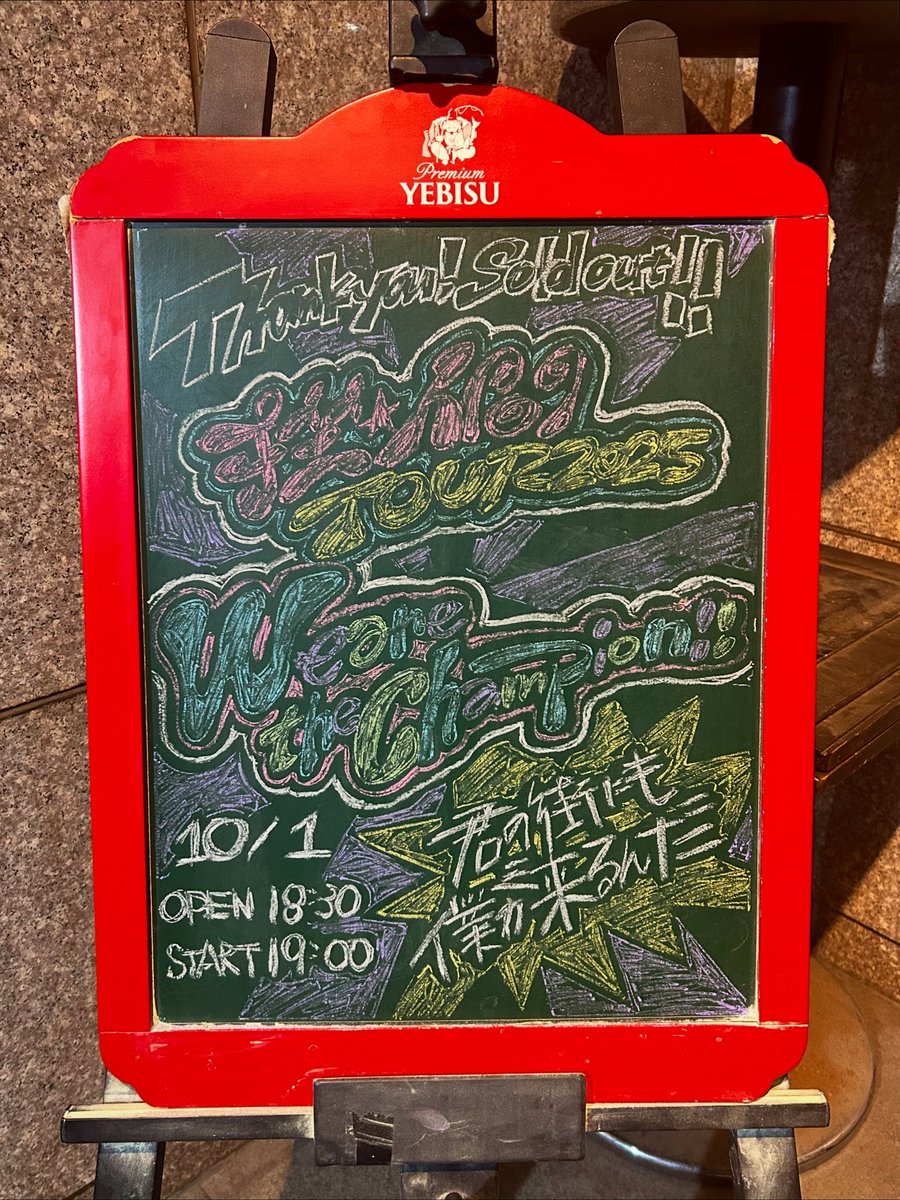 Premium
YEBISU
Thank you! Sold out!!
挫・人間
TOUR 2025
We are
the Champion!!
10/1
OPEN 18:30
START 19:00
君の街にも
僕が来るんだ